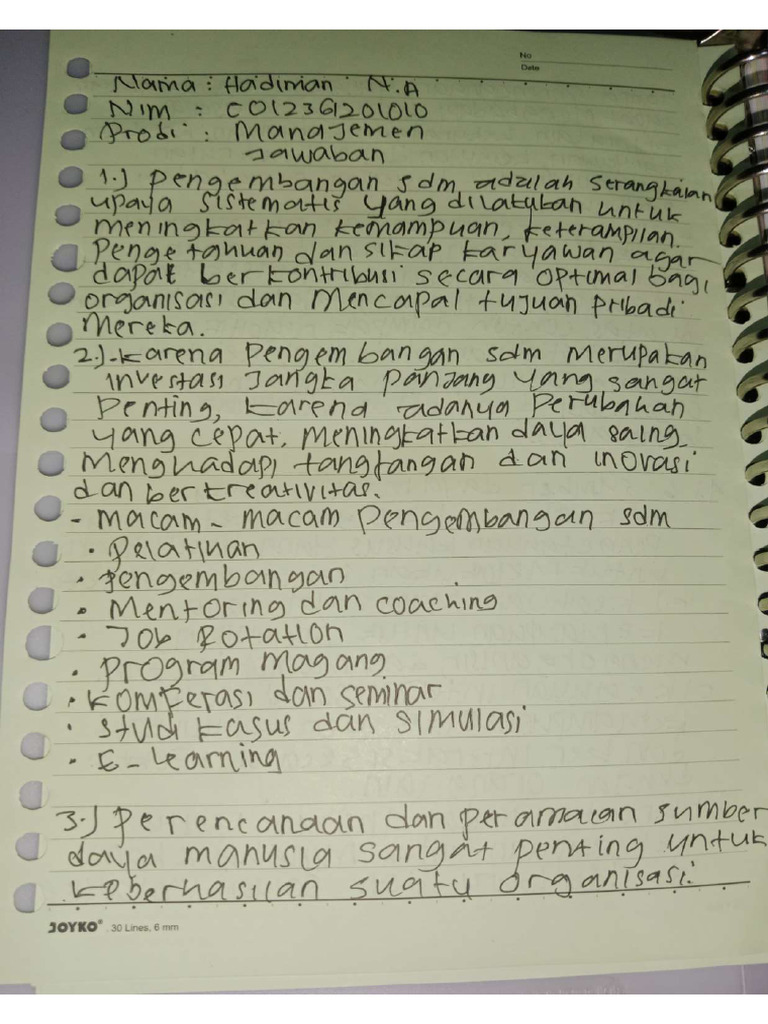 No
Date
Nama : Hadirman N.A
Nim : C012361201010
Prodi : Manajemen
Jawaban
1.) Pengembangan sdm adalah serangkaian
upaya sistematis yang dilakukan untuk
meningkatkan kemampuan, keterampilan.
Pengetahuan dan sikap karyawan agar
dapat berkontribusi secara optimal bagi
organisasi dan Mencapai tujuan pribadi
Mereka.
2.) - karena pengembangan sdm Merupakan
investasi jangka panjang yang sangat
Penting, karena adanya Perubahan
yang cepat, Meningkatkan daya saing,
Menghadapi tangtangan dan inovasi
dan berkreativitas.
- Macam - macam pengembangan sdm
• Pelatihan
• Pengembangan
• Mentoring dan coaching
• Job Rotation
• Program Magang
• Komferasi dan seminar
• Studi kasus dan simulasi
• E - Learning
3.) Perencanaan dan peramalan sumber
daya manusia sangat penting untuk
keberhasilan suatu organisasi.
JOYKO® . 30 Lines, 6 mm